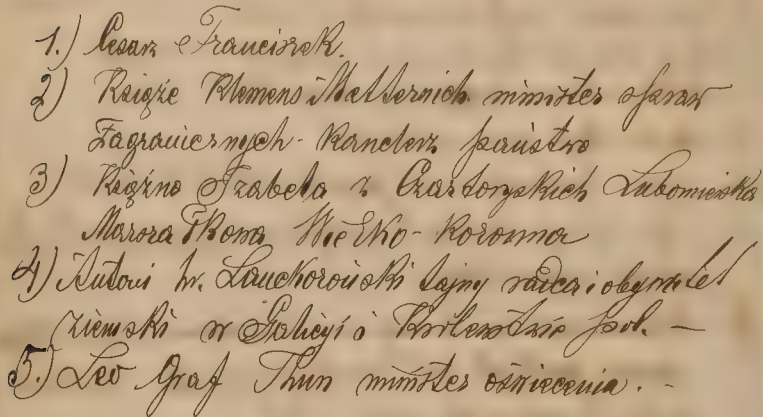 1.) Cesarz Franciszek.
2) Książe Klemens Metternich minister spraw
Zagranicznych - Kanclerz państwa
3) Księżna Izabela z Czartoryskich Lubomirska
Marszałkowa Wielko-Koronna
4) Antoni hr. Lanckoroński tajny radca i obywatel
ziemski w Galicyi i Królestwie pol. —
5.) Leo Graf Thun minister oświecenia. -